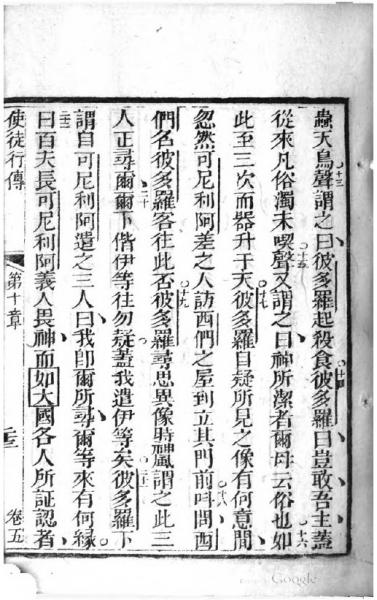 蟲天鳥聲謂之曰彼多羅起殺食彼多羅曰豈敢吾主蓋
從來凡俗濁未喫聲又謂之曰神所潔者爾毋云俗也如
此至三次而器升于天彼多羅自疑所見之像有何意間
忽然可尼利阿差之人訪西們之屋到立其門前呌問西
們名彼多羅客往此否彼多羅尋思異像時神風謂之此三
人正尋爾爾下偕伊等往勿疑蓋我遣伊等矣彼多羅下
謂自可尼利阿遣之三人曰我卽爾所尋爾等來有何緣
曰百夫長可尼利阿義人畏神而如大國各人所証認者
使徒行傳
第十章
二三
卷五
十三
十四
十五
十六
十七
十八
十九
二十
二一
Google